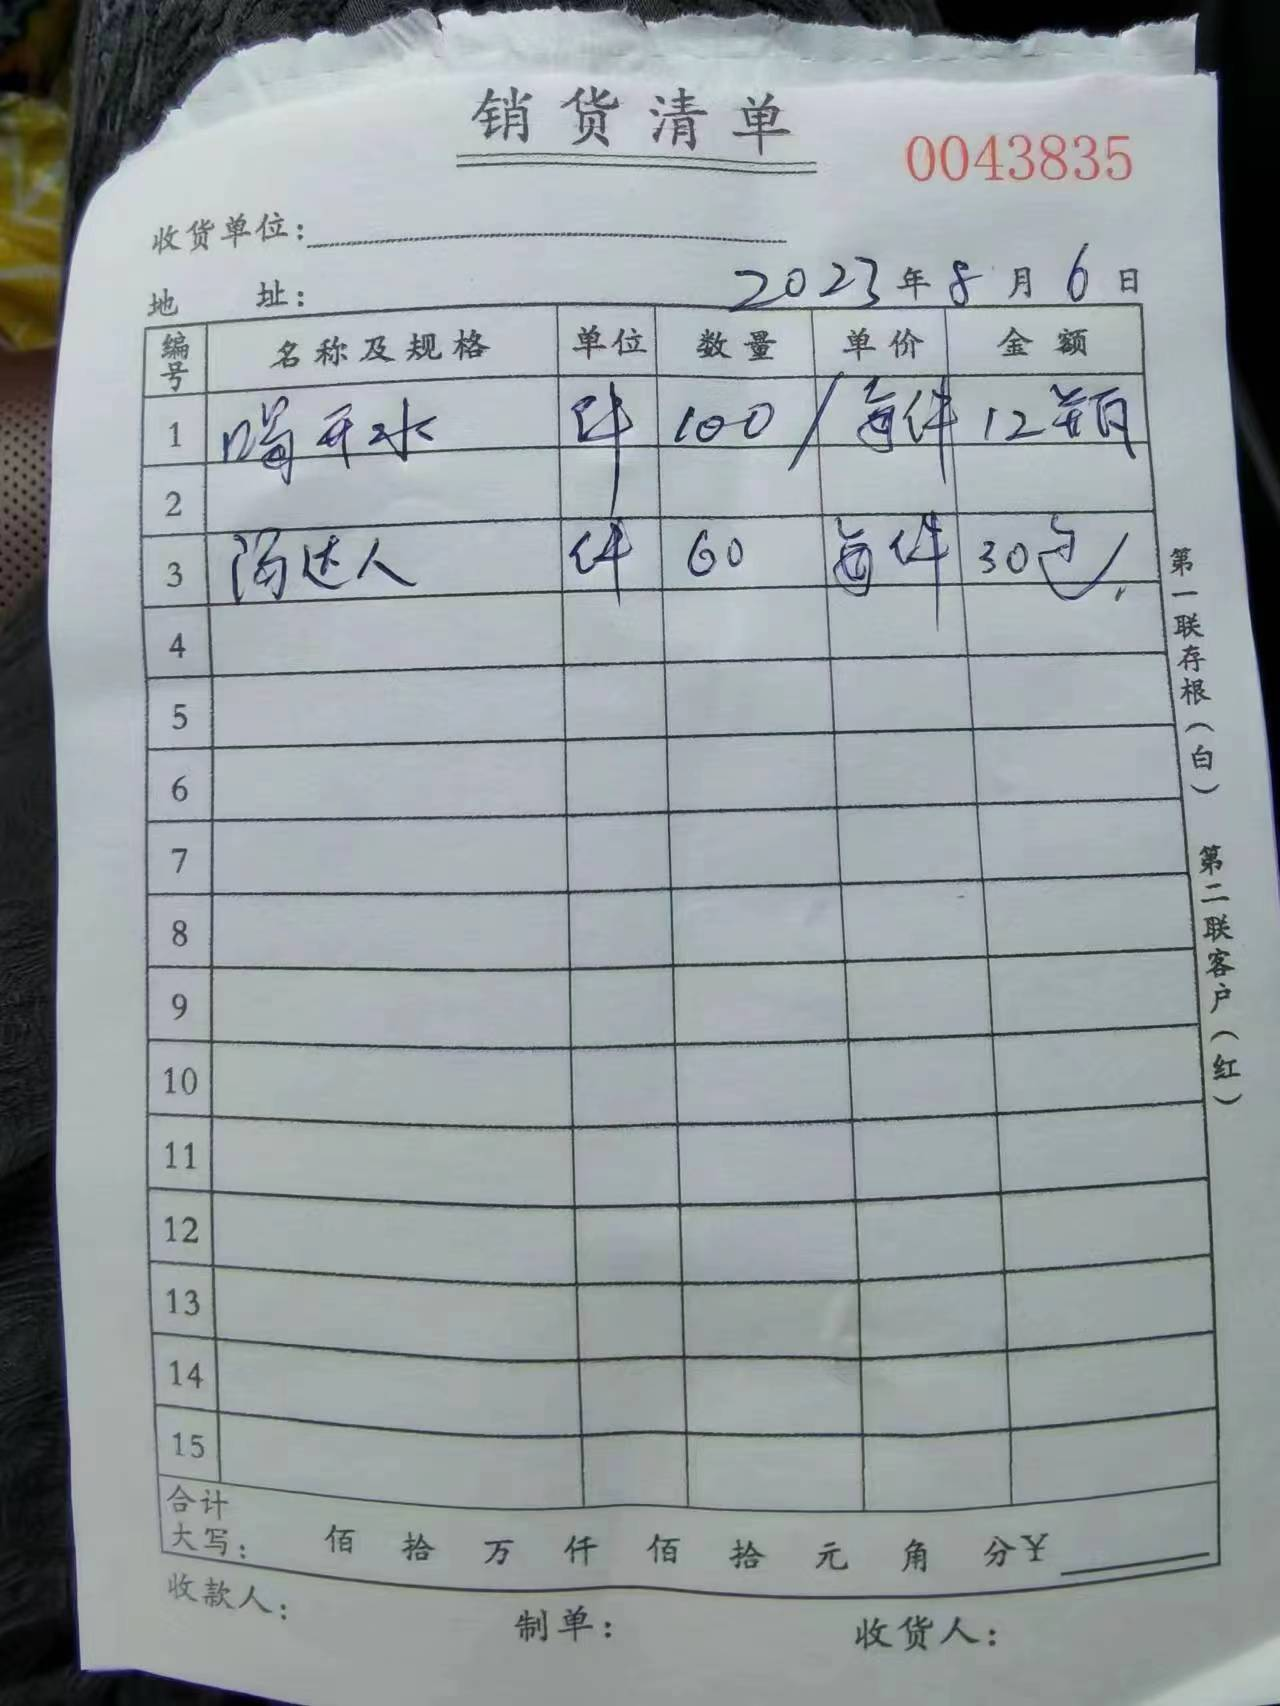 销货清单
0043835
收货单位:
2023年8月6日
地 址:
编号 名称及规格 单位 数量 单价 金额
1 喝开水 件 100 / 每件 12瓶
2
3 汤达人 件 60 每件 30包
4
5
6
7
8
9
10
11
12
13
14
15
合计
大写: 佰 拾 万 仟 佰 拾 元 角 分 ¥
收款人: 制单: 收货人:
第一联存根(白) 第二联客户(红)